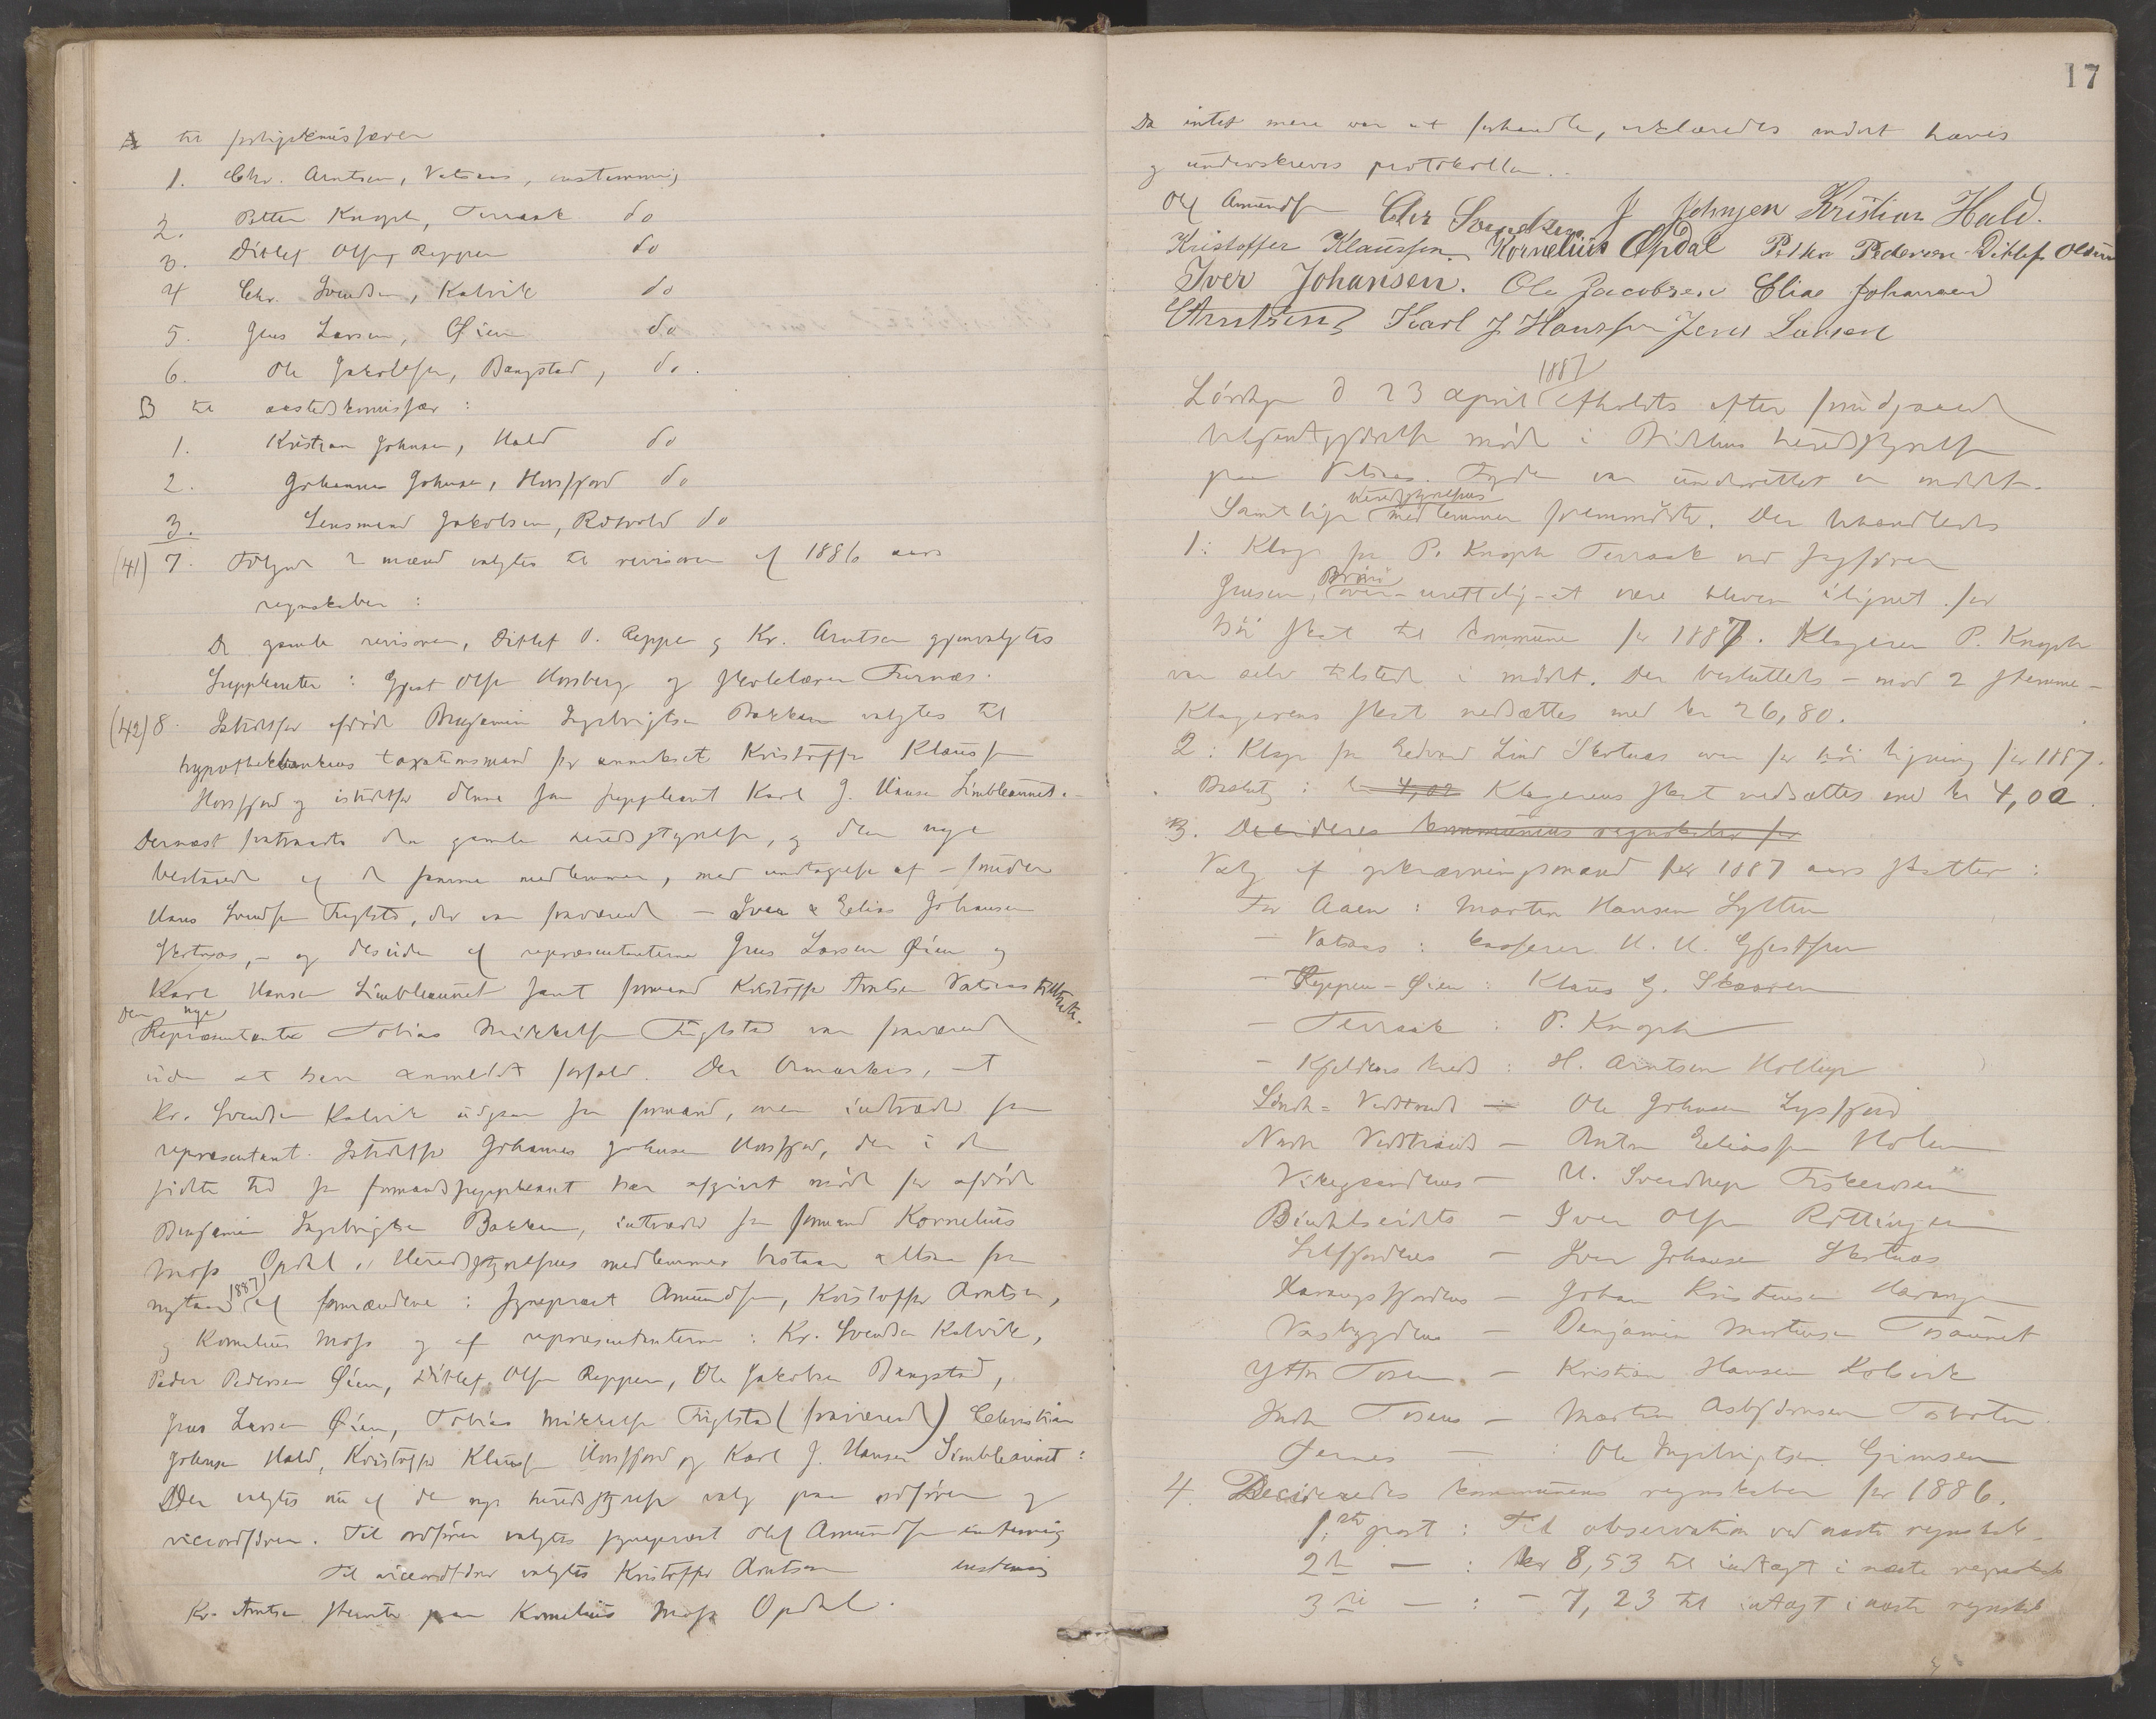 A til forligskomissærer
1. Chr. Arntsen, Vatsaas, enstemmig
2. Petter Knoph, Terraak do
3. Ditlef Olsen Reppen do
4 Chr. Svendsen, Kalvik do
5. Jens Larsen, Øien do
6. Ole Jakobsen, Bangstad, do.
B til
1. Kristian Johnsen, Hald do
2. Johannes Johnsen, Horsfjord do
3. Lensmand Jakobsen, Röthvold do
(41) 7. Følgende 2 mænd valgtes til revisorer af 1886 aars
regnskaber:
De gamle revisorer, Ditlef O. Reppen og Kr. Arntsen gjenvalgtes
Suppleanter: Gjert Olsen Horsberg og skolelærer Fiernæs.
(42) 8. Istedetfor afdöde Benjamin Ingebrigtsen Bakken valgtes til
hypothekbankens taxationsmand for annekset Kristoffer Klausen
Horsfjord og istedetfor denne som suppleant Karl J. Hansen Simbleaunet.
Dernæst fratraadte den gamle heredsstyrelse, og den nye
bestaaende af de samme medlemmer, med undtagelse af
Hans Svendsen Fuglstad, der var fraværende – Iver & Elias Johansen
Skotnæs, – og desuden af repræsentanterne Jens Larsen Øien og
Karl Hansen Simbleaunet samt formand Kristoffer Arntsen Vatsaas tiltraadte.
Den nye
Repræsentant Tobias Mikkelsen Fuglstad var fraværende
uden at have anmeldt forfald. Der bemærkes, at
Kr. Svendsen Kalvik udgaar som formand, men indtræder som
repræsentant. Istedetfor Johannes Johnsen Horsfjord, der i den
sidste tid som formandssuppleant har afgivet möde for afdöde
Benjamin Ingebrigtsen Bakken, indtræder som formand Kornelius
Moss Opdal. Heredsstyrelsens medlemmer bestaar altsaa fra
nytaar 1887 af formændene: Sogneprest Amundsen, Kristoffer Arntsen,
og Kornelius Moss og af repræsentanterne: Kr. Svendsen Kalvik,
Peder Pedersen Øien, Ditlef Olsen Reppen, Ole Jakobsen Bangstad,
Jens Larsen Øien, Tobias Mikkelsen Fuglstad (fraværende) Christian
Johnsen Hald, Kristoffer Klausen Horsfjord og Karl J. Hansen Simbleaunet:
Der valgtes nu af den nye heredsstyrelse valg paa ordförer og
viceordförer. Til ordförer valgtes sogneprest Olef Amundsen enstemmig
Til viceordförer valgtes Kristoffer Arntsen enstemmig
Kr. Arntsen stemte paa Kornelius Moss Opdal.
17
Da intet mere var at forhandle, erklæredes mödet hævet
og underskreves protokollen.
Olef Amundsen Chr Svendsen J Johnsen Kristian Hald.
Kristoffer Klaussen. Kornelius Opdal Petter Pedersen Ditlef Olsen
Iver Johansen. Ole Jacobsen Elias Johansen
CArntsen Karl J Hanssen Jens Larsen
Lördag d 23 april 1887 afholdts efter forudgaaende
bekjentgjörelse möde i Bindalens heredsstyrelse
paa Vatsaas. Fogden var underrettet om mödet.
Samtlige heredsstyrelsens medlemmer fremmödte. Der behandledes
1: Klage fra P. Knoph Terraak ved sagförer
Jensen, Brönö over – urettelig – at være bleven ilignet for
höi skat til kommunen for 1887. Klageren P. Knoph
var selv tilstede i mödet. Der besluttedes – mod 2 stemmer –
Klagerens skat nedsættes med kr 26,80.
2: Klage fra Edvard Lind Skotnæs over for höi ligning for 1887.
Beslutn: kr 4,02 Klagerens skat nedsættes med kr 4,02.
3. Decideres kommunens regnskaber for
Valg af opkrævningsmænd for 1887 aars skatter:
For Aaen: Morten Hansen Sylten
– Vatsaas: kasserer H. H. Gjertsen
– Reppen-Øien: Klaus G. Skaaren
– Terraak: P. Knoph
– Kjeldens kreds: H. Arntsen Hollup
Söndre Vedstrands – Ole Johnsen Lysfjord
Nordre Vedstrands – Anton Eliassen Holm
Vikegrandens – H. Svendsen Fiskerosen
Bindalseidets – Iver Olsen Röttingen
Sörfjordens – Iver Johansen Skotnæs
Harangsfjordens – Johan Kristensen Harangen
Vasbygdens – Benjamin Mortensen Tosaunet
Yttre Tosen – Kristian Hansen Kolsvik
Indre Tosens – Martin Asbjörnsen Tosbotn
Øernes – : Ole Ingebrigtsen Grimsen
4. Decideredes kommunens regnskaber for 1886.
1.ste post: Til observation ved næste regnskab.
2de – : kr 8,53 til indtægt i næste regnskab
3die – : – 7,23 til indtægt i næste regnskab